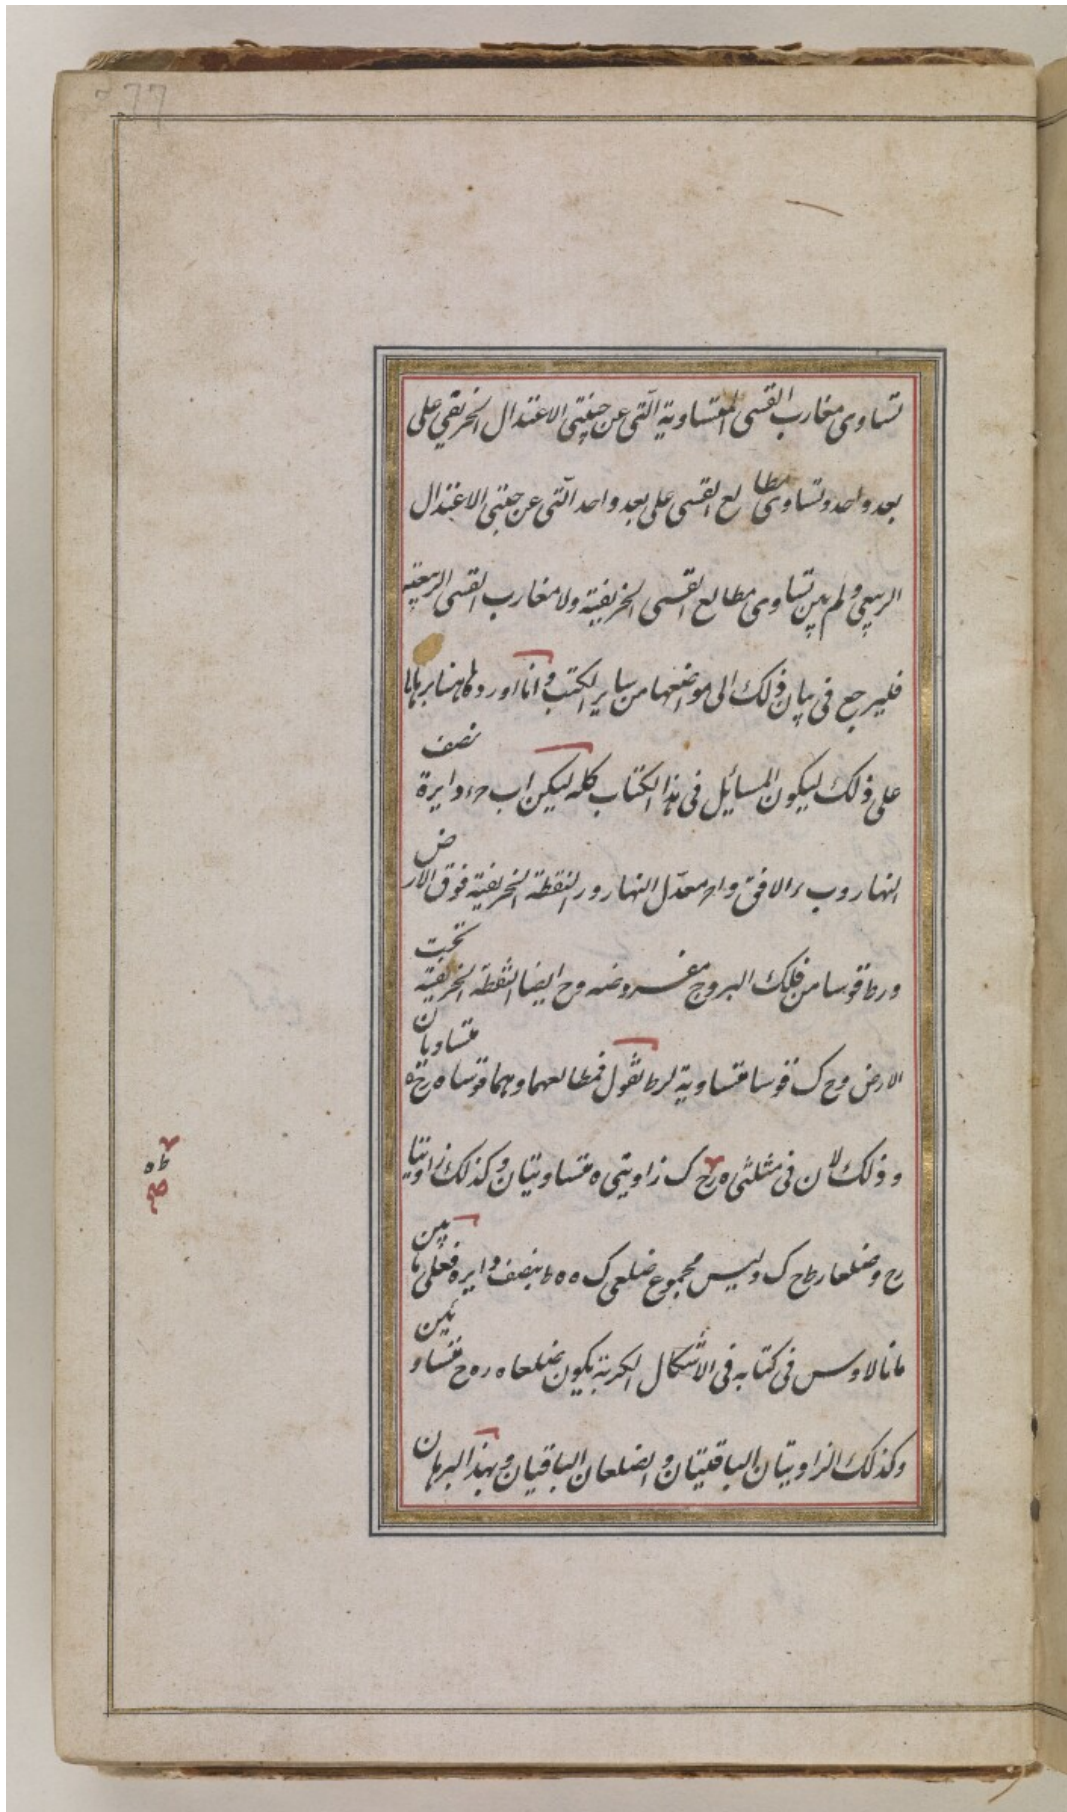 تساوى مغارب القسى المتساوية الّتى عن جنبتى الاعتدال الخريفي على
بعد واحد وتساوى مطالع القسى على بعد واحد الّتى عن جنبتى الاعتدال
الربيعي ولم يبين تساوى مطالع القسى الخريفية ولا مغارب القسى الربيعية
فليرجع فى بيان ذلك الى مواضعها من ساير الكتب وانا اورد هاهنا برهانا
على ذلك ليكون المسائل فى هذا الكتاب كله ليكن اب حء دايرة نصف
النهار وب ء الافق واح معدّل النهار ور النقطة الخريفية فوق الارض
ورط قوسا من فلك البروج مفروضه وح ايضا النقطة الخريفية تحت
الارض وح ك قوسا متساوية لرط نقول فمطالعهما وهما قوسا ه ر ح ه متساويان
وذلك لان فى مثلثى ه ر ح ك زاويتى ه متساويتان وكذلك زاويتا
رح وضلعا رط ح ك وليس مجموع ضلعى ك ه ه ط بنصف دايرة فعلى ما بين
مانالاوس فى كتابه فى الاشكال الكرية يكون ضلعا ه ر ه ح متساويين
وكذلك الزاويتان الباقيتان والضلعان الباقيان وبهذا البرهان
ط ه
صح